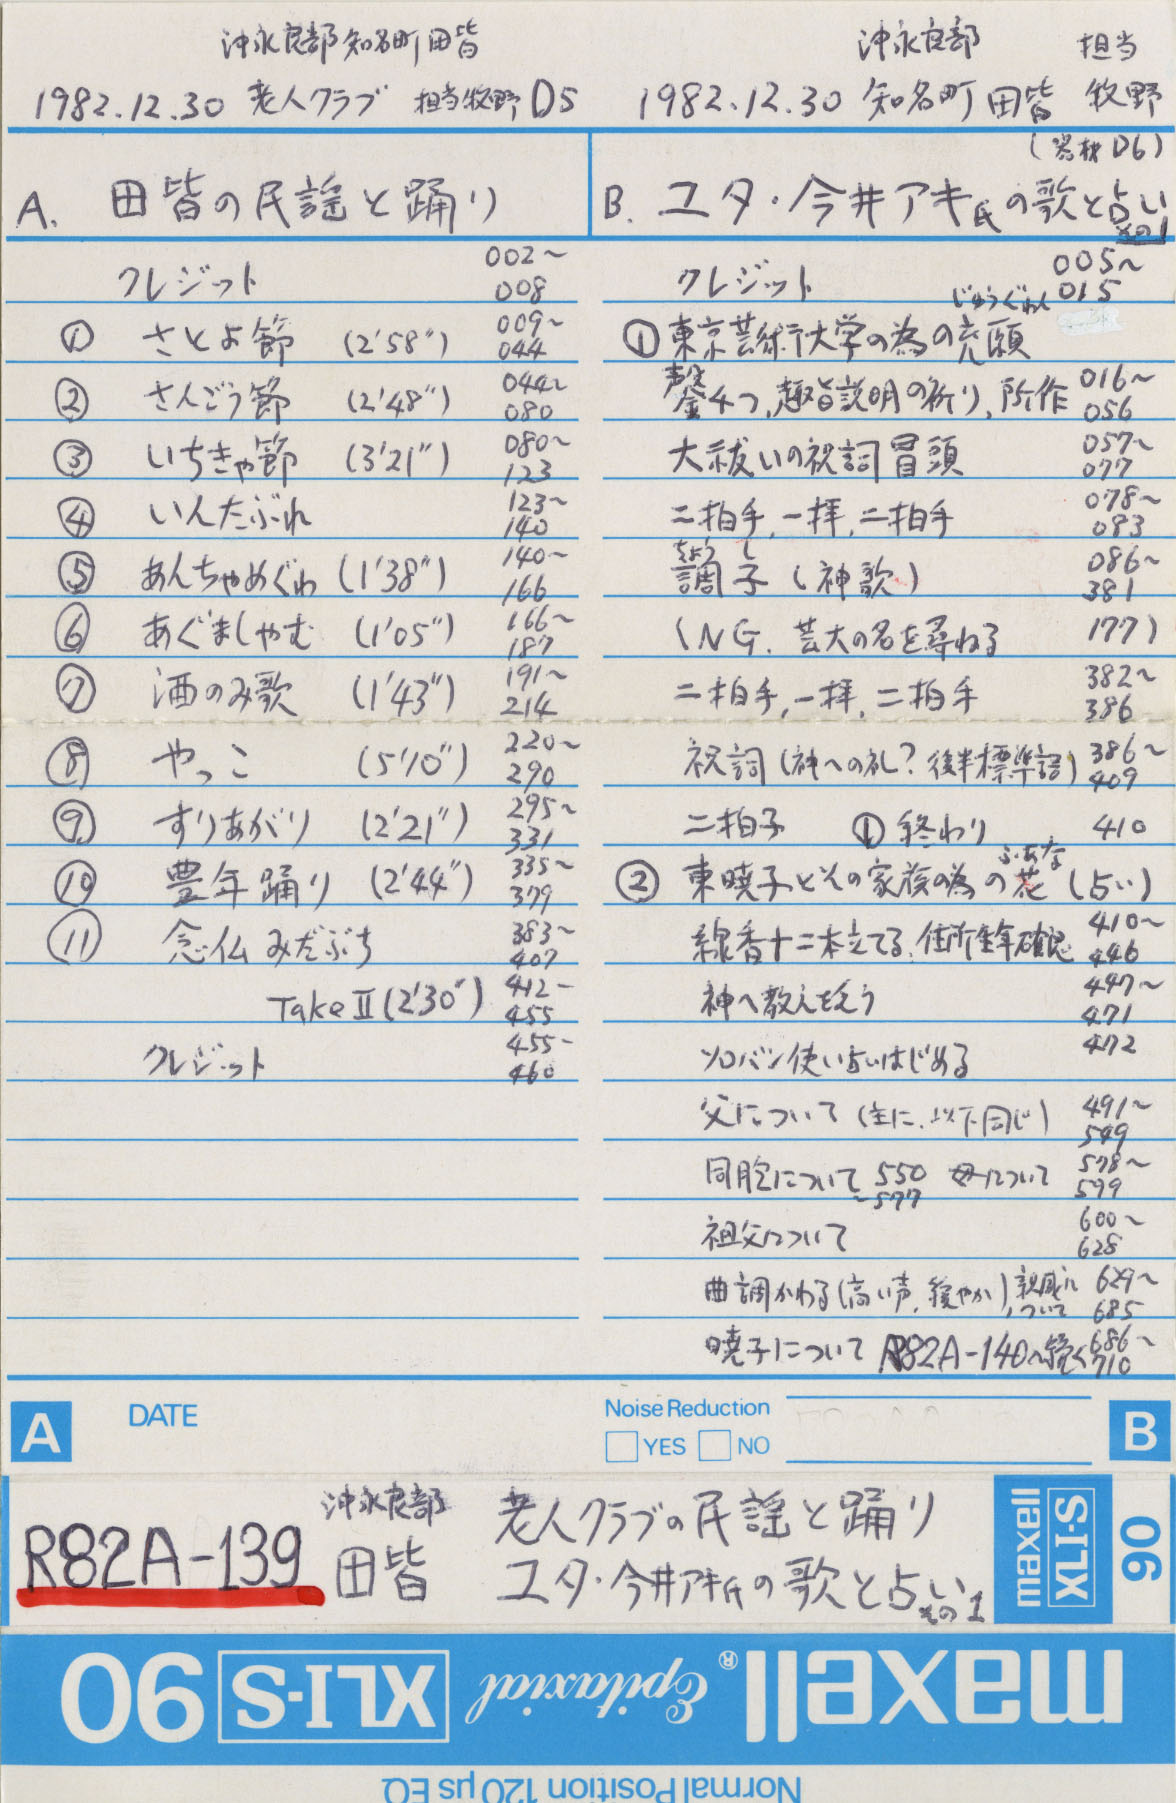 沖永良部知名町田皆
1982.12.30 老人クラブ 担当牧野 D5
A. 田皆の民謡と踊り
クレジット 002〜008
① さとよ節 (2'58") 009〜044
② さんごう節 (2'48") 044〜080
③ いちきゃ節 (3'21") 080〜123
④ いんたぶれ 123〜140
⑤ あんちゃめぐわ (1'38") 140〜166
⑥ あぐましゃむ (1'05") 166〜187
⑦ 酒のみ歌 (1'43") 191〜214
⑧ やっこ (5'10") 220〜290
⑨ すりあがり (2'21") 295〜331
⑩ 豊年踊り (2'44") 335〜379
⑪ 念仏 みだぶち 383〜407
Take II (2'30") 412-455
クレジット 455-460
沖永良部 担当
1982.12.30 知名町 田皆 牧野
D6)
B. ユタ・今井アキ氏の歌と占い
その1
クレジット 005〜015
じゅうぐわん
① 東京芸術大学の為の願
4つ、趣旨説明の祈り、所作 016〜056
大祓いの祝詞冒頭 057〜077
二拍手、一拝、二拍手 078〜083
ちょうし
調子 (神歌) 086〜381
(NG. 芸大の名を尋ねる 177)
二拍手、一拝、二拍手 382〜386
祝詞 (神への礼? 後半標準語) 386〜409
二拍子 ① 終わり 410
ふぁな
② 東暁子とその家族の為の花 (占い)
線香十二本立てる、住所生年確認 410〜446
神へ教えを乞う 447〜471
ソロバン使い占いはじめる 472
父について (主に、以下同じ) 491〜549
同胞について 550〜577 母について 578〜599
祖父について 600〜628
曲調かわる (高い声、緩やか)、親戚について 629〜685
暁子について R82A-140へ続く 686〜710
A DATE
Noise Reduction
YES NO
B
R82A-139
沖永良部
田皆
老人クラブの民謡と踊り
ユタ・今井アキ氏の歌と占い その1
maxell
XLI-S
90
maxell® Epitaxial XLI-S 90
Normal Position 120μs EQ